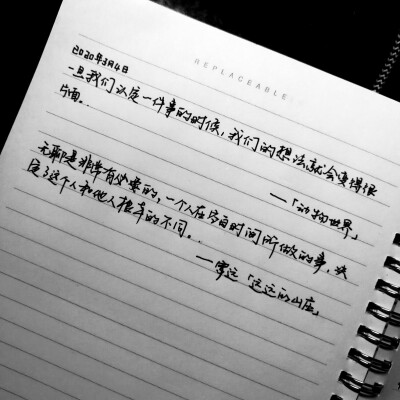 REPLACEABLE
2020年3月4日
一旦我们认定一件事的时候，我们的想法就会变得很
片面。
——「动物世界」
无聊是非常有必要的，一个人在空白时间所做的事，决
定了这个人和他人根本的不同。
——雪远「远远的山庄」